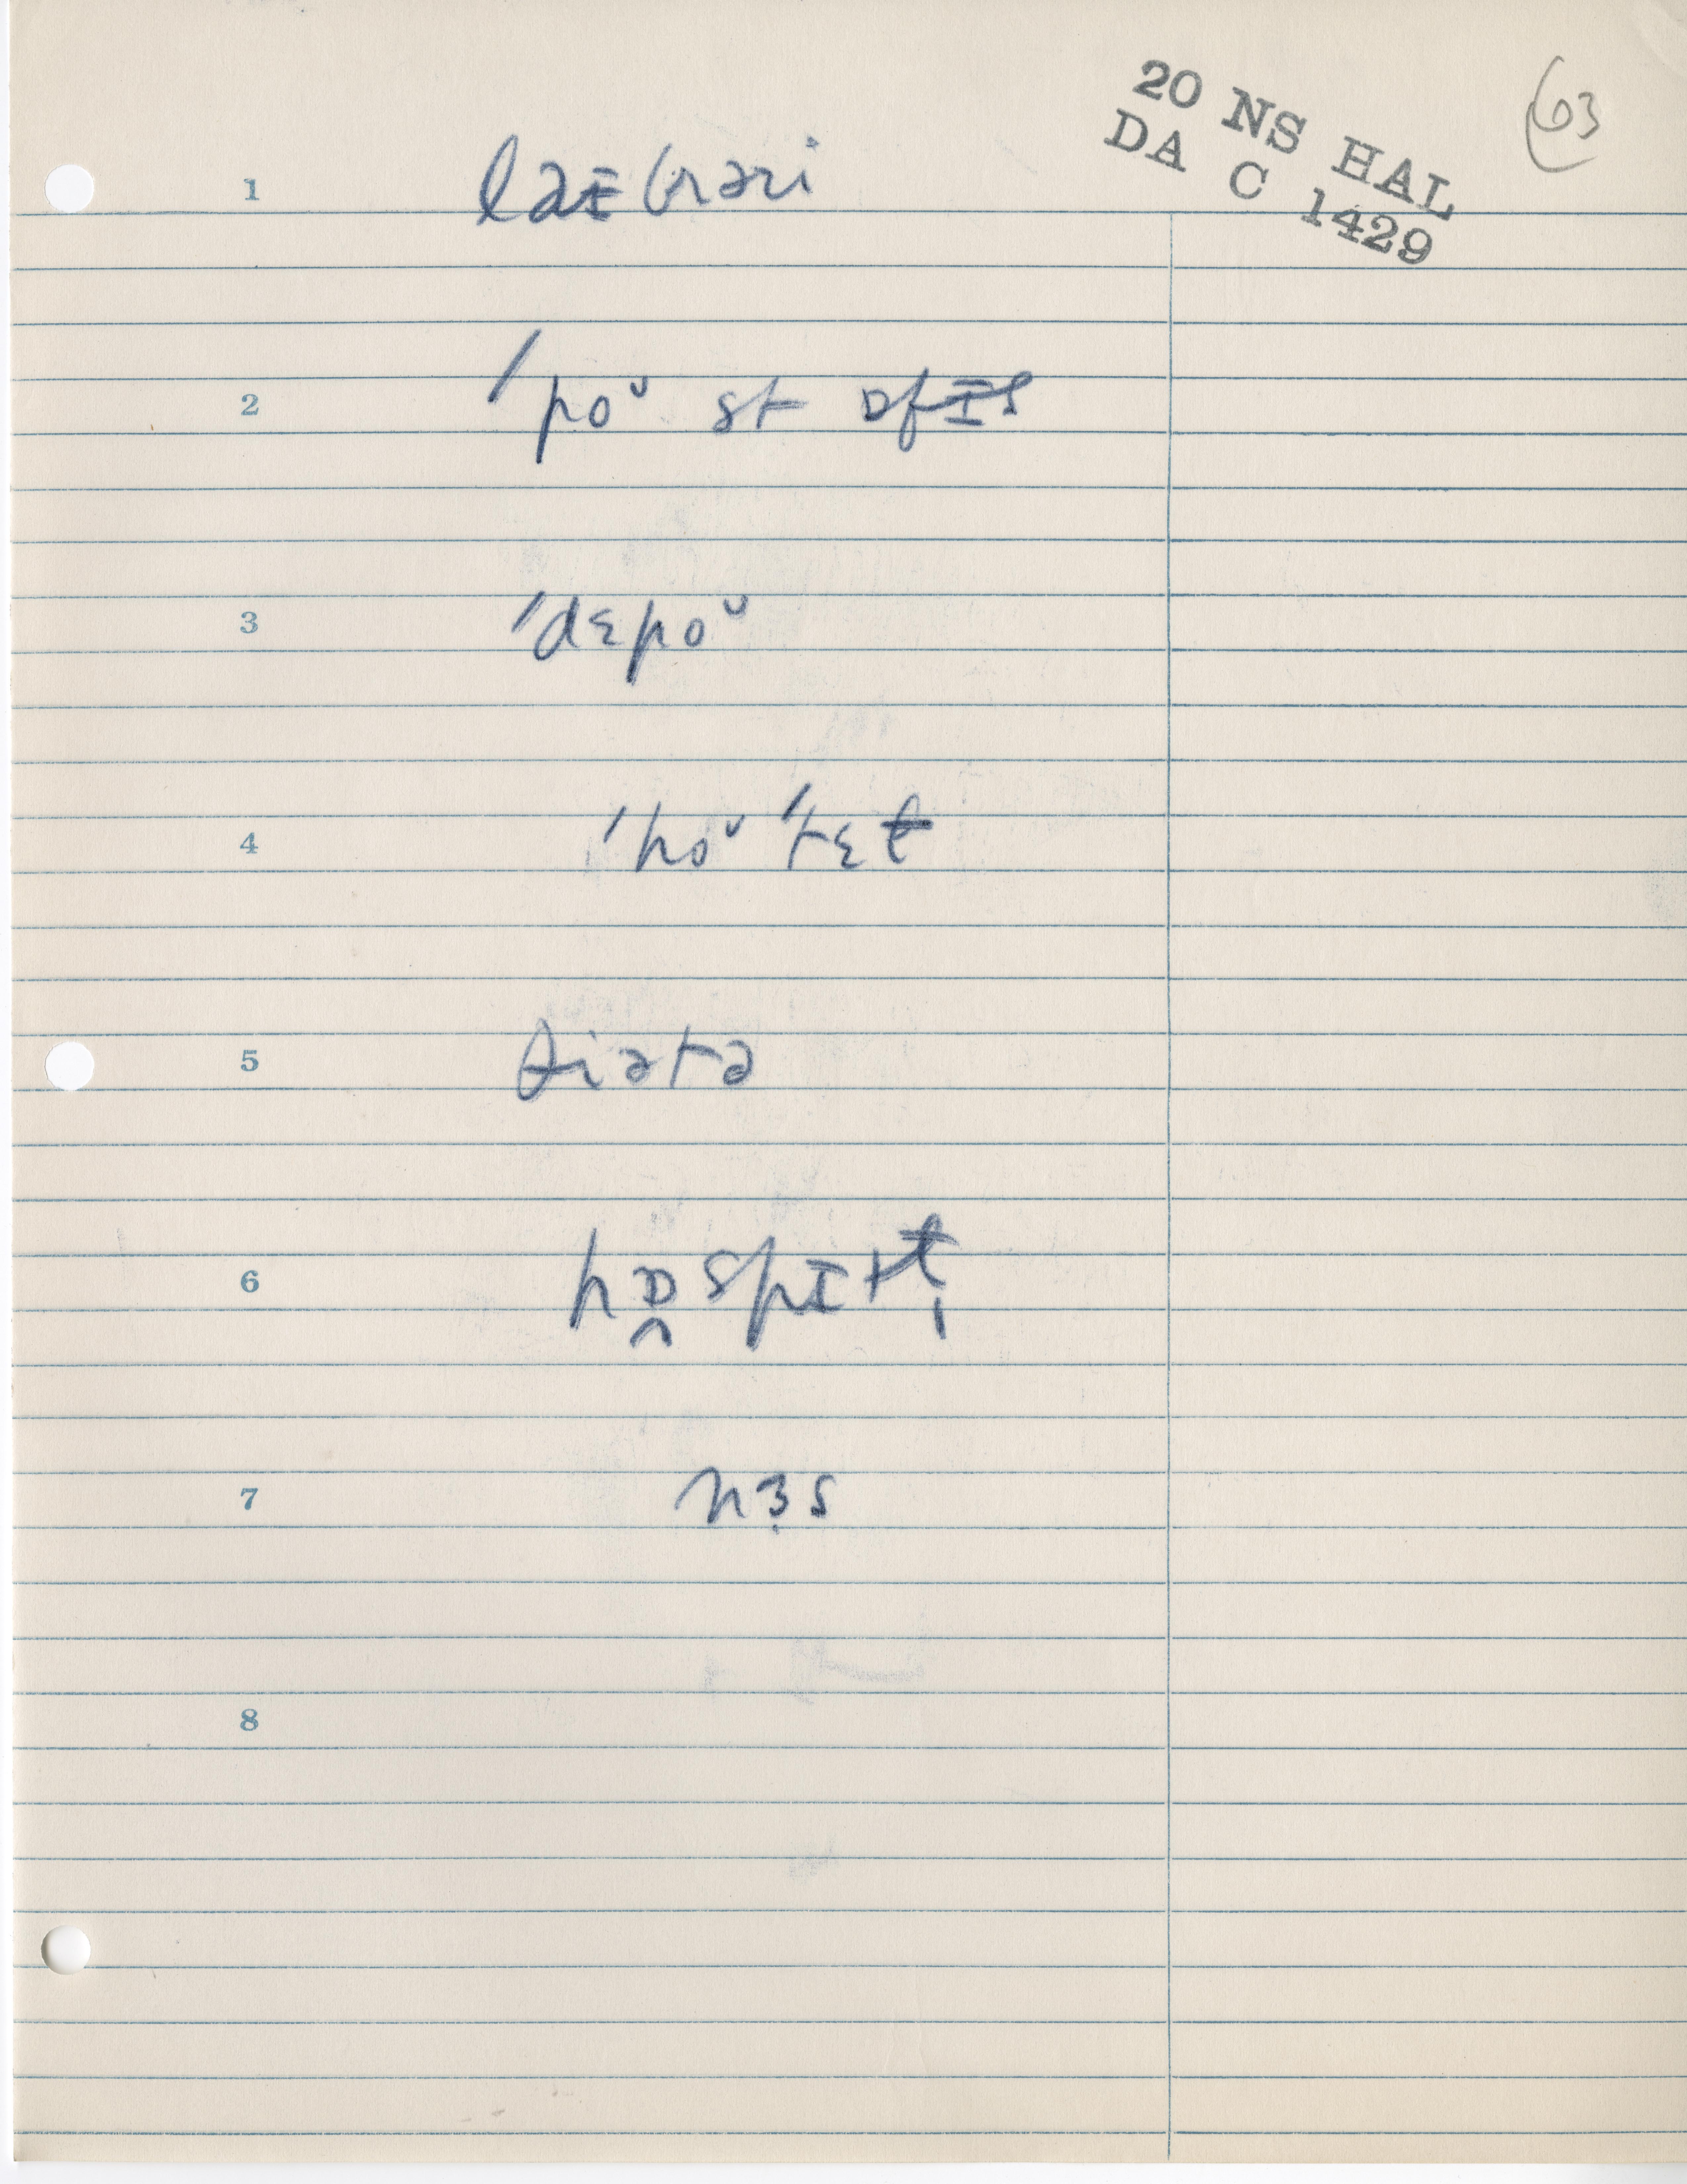 20 NS HAL
DA C 1429
63
1 laɪbrəri
2 ˈpoᶷ st ɒfɪs
3 ˈdɛpoᶷ
4 ˈhoᶷˈtɛɫ
5 θiətə
6 hɒ̯spɪtɫ̩
7 nɜs
8